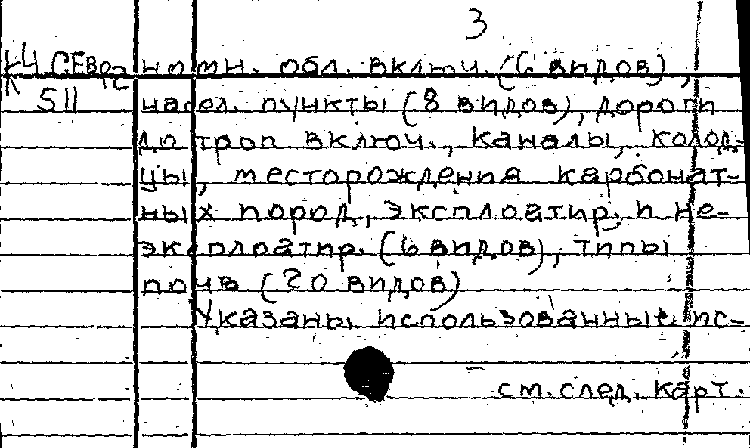 3
К4 СЕВ 02 номн. обл. включ. (6 видов),
К 511 насел. пункты (8 видов), дороги
до троп включ., каналы, колод-
цы, месторождения карбонат-
ных пород, эксплоатир. и не-
эксплоатир. (6 видов), типы
почв (20 видов)
Указаны использованные ис-
см. след. карт.